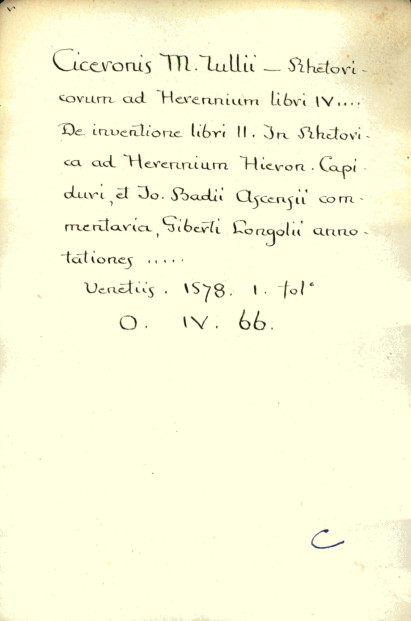 Ciceronis M. Tullii — Rhetori-
corum ad Herennium libri IV....
De inventione libri II. In Rhetori-
ca ad Herennium Hieron. Capi-
duri, et Jo. Badii Ascensii com-
mentaria, Giberti Longolii anno-
tationes .....
Venetiis. 1578. 1. fol°
O. IV. 66.
C